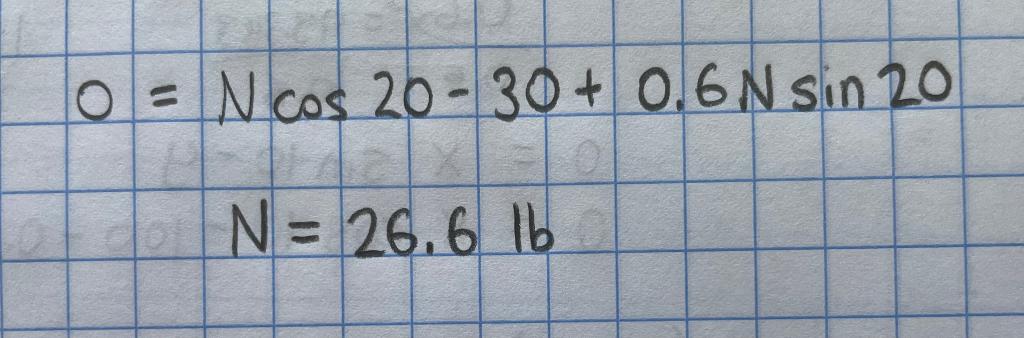 0 = N cos 20 - 30 + 0.6 N sin 20
N = 26.6 lb